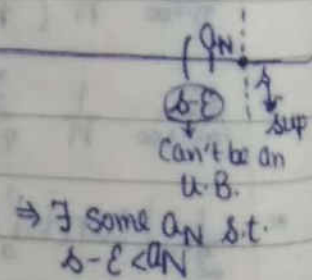 aN
s
s-ε
sup
Can't be an
U.B.
⇒ ∃ some aN s.t.
s-ε<aN